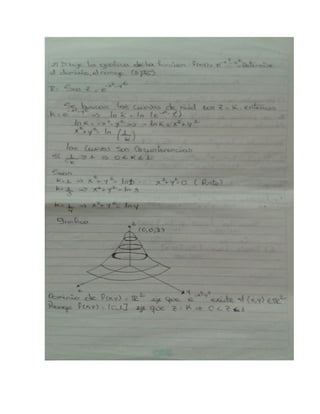 2) Dibuje la grafica de la funcion f(x,y) = e^-x²-y². Determine
el dominio, el rango (5 pts)
R: Sea z = e^-x²-y²
Se buscan las curvas de nivel con z = k, entonces
k = e^-x²-y² ⇒ ln k = ln (e^-x²-y²)
ln k = -x²-y² ⇒ -ln k = x²+y²
x²+y² = ln (1/k)
las curvas son circunferencias
si 1/k > 1 ⇒ 0 < k < 1
Sean
k=1 ⇒ x²+y² = ln 1 x²+y² = 0 (Punto)
⇒ x²+y² = ln
k=1/4 ⇒ x²+y² = ln 4
Grafica
z
(0,0,1)
x
y
Dominio de f(x,y) = ℝ² ya que e^-x²-y² existe ∀ (x,y) ∈ ℝ²
Rango f(x,y) = (0,1] ya que z = k ⇒ 0 < z ≤ 1